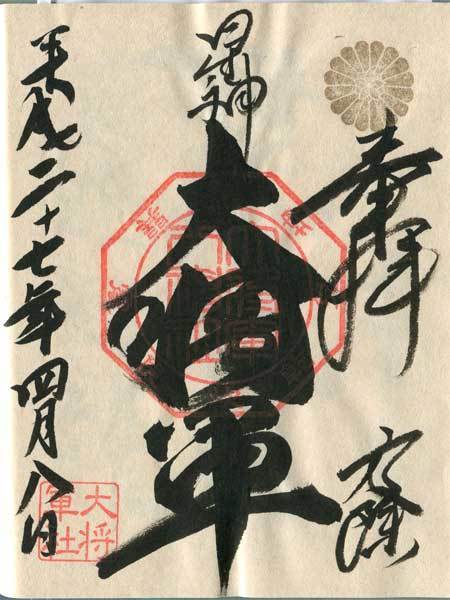 奉拝
方除
星神
大将軍
平成二十七年四月八日
大将
軍社